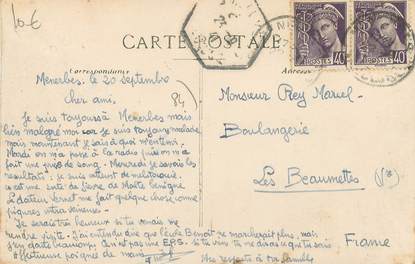 10€
CARTE POSTALE
Correspondance
Adresse
POSTES 40
POSTES 40
84
Menerbes, le 20 septembre
Cher ami,
Je suis toujours à Menerbes mais
bien malgré moi car je suis toujours malade
mais maintenant je sais à quoi m'en tenir.
Mardi on m'a passé à la radio puis on m'a
fait une prise de sang. Mercredi je savais les
résultats : je suis atteint de melitococcie.
c'est une sorte de fièvre de Malte bénigne
Le docteur Vernet me fait quelque chose comme
piqures intra veineuses.
Je serais très heureux si tu venais me
rendre visite. J'ai entendu dire que l'école Benoit ne marcherait plus, mais
j'en doute beaucoup. On est pas une EPS. si tu viens tu me diras ce que tu sais
Affectueuse poignée de mains
Mes respects à ta famille
Monsieur Rey Marcel
Boulangerie
Les Beaumettes (Vse)
France